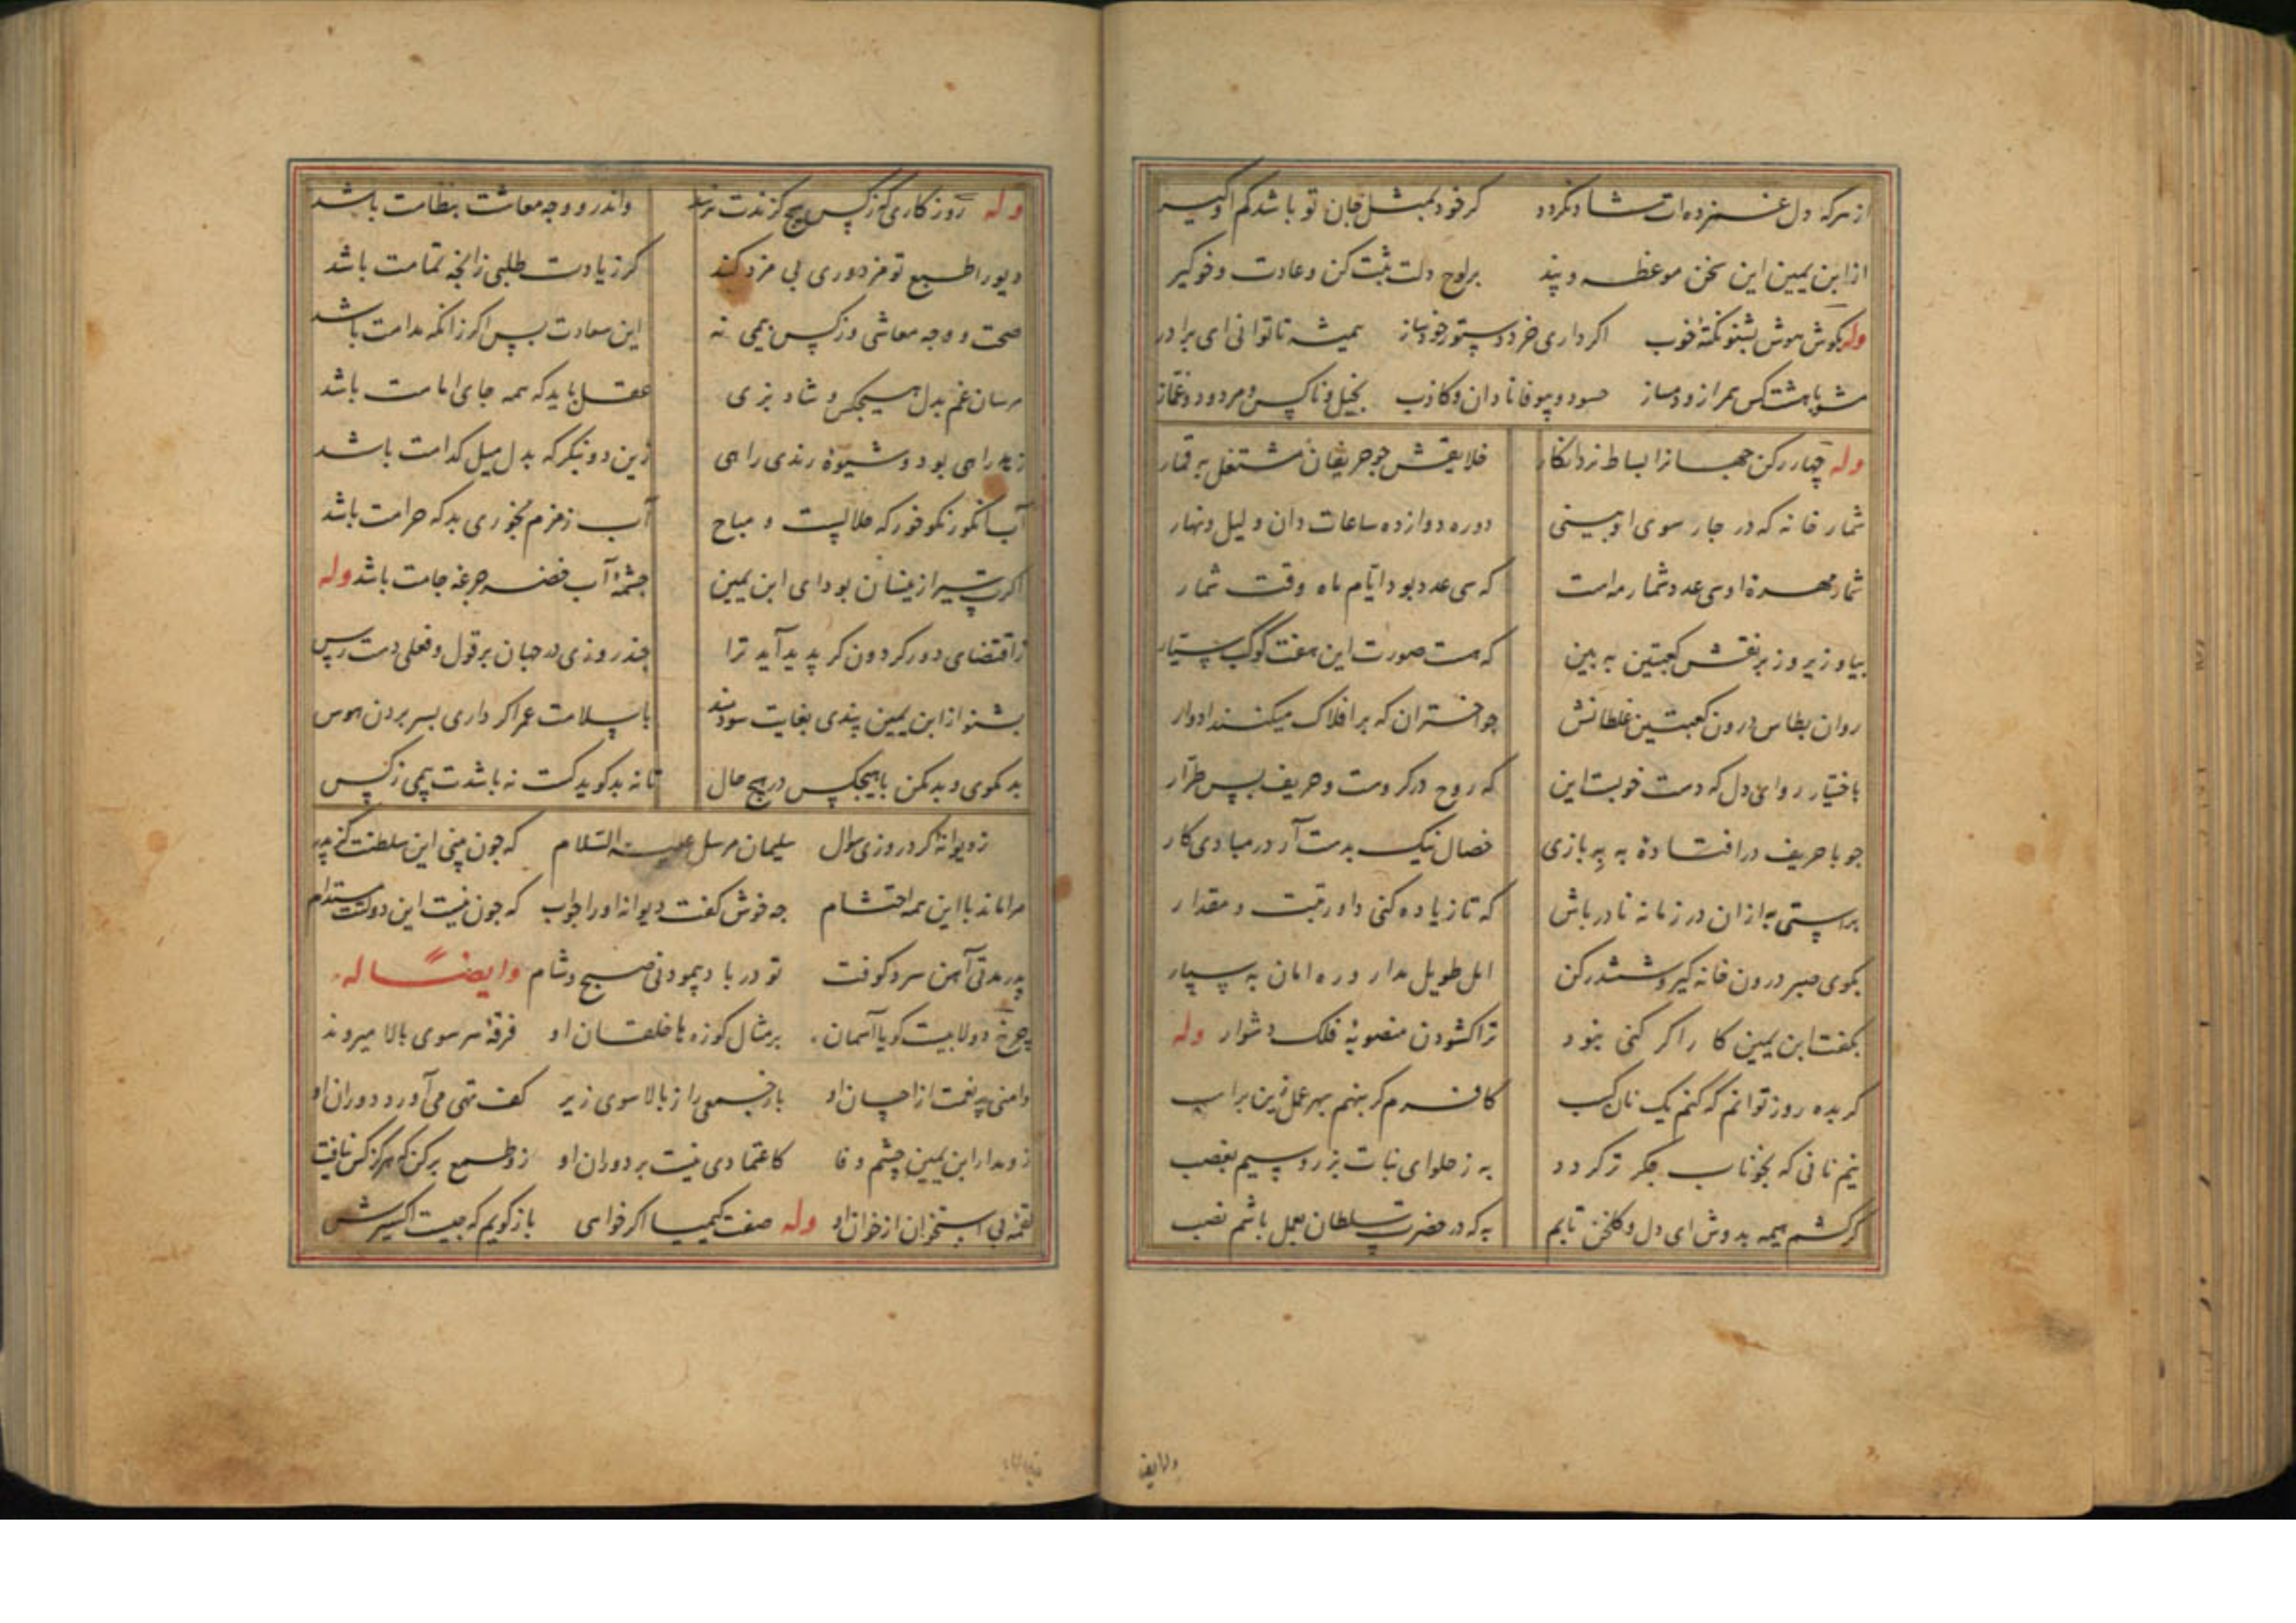 از هرکه دل غمزده‌ات شاد نکردد کر خود بمثل جان تو باشد کم او کیر
از ابن یمین این سخن موعظه و پند بر لوح دلت ثبت کن و عادت و خو کیر
وله بکوش هوش بشنو نکتهٔ خوب اکر داری خرد دستور خود ساز همیشه تا توانی ای برادر
مشو با هشت کس همراز و دمساز حسود و بیوفا نادان و کاذب بخیل و ناکس و مردود و غماز
وله چهار رکن جهانرا بساط نرد انکار خلایقش جو حریفان مشتغل به قمار
شمار خانه که در جار سوی او بینی دوره دوازده ساعات دان و لیل و نهار
شمار مهرهٔ او سی عدد شمار مه است که سی عدد بود ایام ماه وقت شمار
بیا و زیر و زبر نقش کعبتین به بین که هست صورت این هفت کوکب سیار
روان بطاس درون کعبتین غلطانش جو اختران که بر افلاک میکنند ادوار
باختیار رو ای دل که دست خونست این که روح در کروست و حریف بس طرار
جو با حریف در افتادهٔ به به بازی خصال نیک بدست آر در مبادی کار
براستی به از آن در زمانه نادر باش که تا زیاده کنی داو رتبت و مقدار
بکوی صبر درون خانه کیر و ششدر کن امل طویل مدار و ره امان به سپار
بکفت ابن یمین کا راکر کنی نبود ترا کشودن منصوبهٔ فلک دشوار وله
کر بده روز توانم که کنم یک نان کسب کافرم کر بنهم بهر عمل زین بر اسب
نیم نانی که بخوناب جکر تر کردد به ز حلوای نبات بزر و سیم بغصب
کر کشم هیمه بدوش ای دل و کلخن تابم به که در حضرت سلطان بعمل باشم نصب
ولایق
وله روزکاری که ز کس هیج کزندت نرسد واندرو وجه معاشت بنظامت باشد
دیو را طبع تو مزدوری بی مزد کند کر زیادت طلبی زانجه تمامت باشد
صحت و وجه معاشی و ز کس بیمی نه این سعادت بس اکر زانکه مدامت باشد
مرسان غم بدل هیجکس و شاد بزی عقل باید که همه جای امامت باشد
زهد راهی بود و شیوهٔ رندی راهی زین دو بنکر که بدل میل کدامت باشد
آب انکور نکو خور که حلالیست و مباح آب زمزم مخوری بد که حرامت باشد
اکرت سیر ازینسان بود ای ابن یمین جشمهٔ آب خضر جرعهٔ جامت باشد وله
ز اقتضای دور کردون کر پدید آید ترا جند روزی در جهان بر قول و فعلی دست رس
بشنو از ابن یمین پندی بغایت سودمند با سلامت عمر اکر داری بسر بردن هوس
بد مکوی و بد مکن با هیجکس در هیج حال تا نه بد کوید کست نه باشدت بیمی ز کس
ز دیوانهٔ کرد روزی سوال سلیمان مرسل علیه السلام که جون بینی این سلطنت کز پدر
مرا ماند با این همه احتشام جه خوش کفت دیوانه او را جواب که جون نیست این دولتت مستدام
پدر مدتی آهن سرد کوفت تو در باد پیمودنی صبح و شام وایضاً له
چرخ دولابیست کویا آسمان بر مثال کوزه‌ها خلقان او فرقهٔ سر سوی بالا میروند
دامنی پر نعمت از احسان او باز جمعی را ز بالا سوی زیر کف تهی می‌آورد دوران او
زو مدار ابن یمین چشم وفا کاعتمادی نیست بر دوران او زو طمع برکن که هرکز کس نیافت
لقمهٔ بی استخوان از خوان او وله صفت کیمیا اکر خواهی باز کویم که جیست اکسیرش